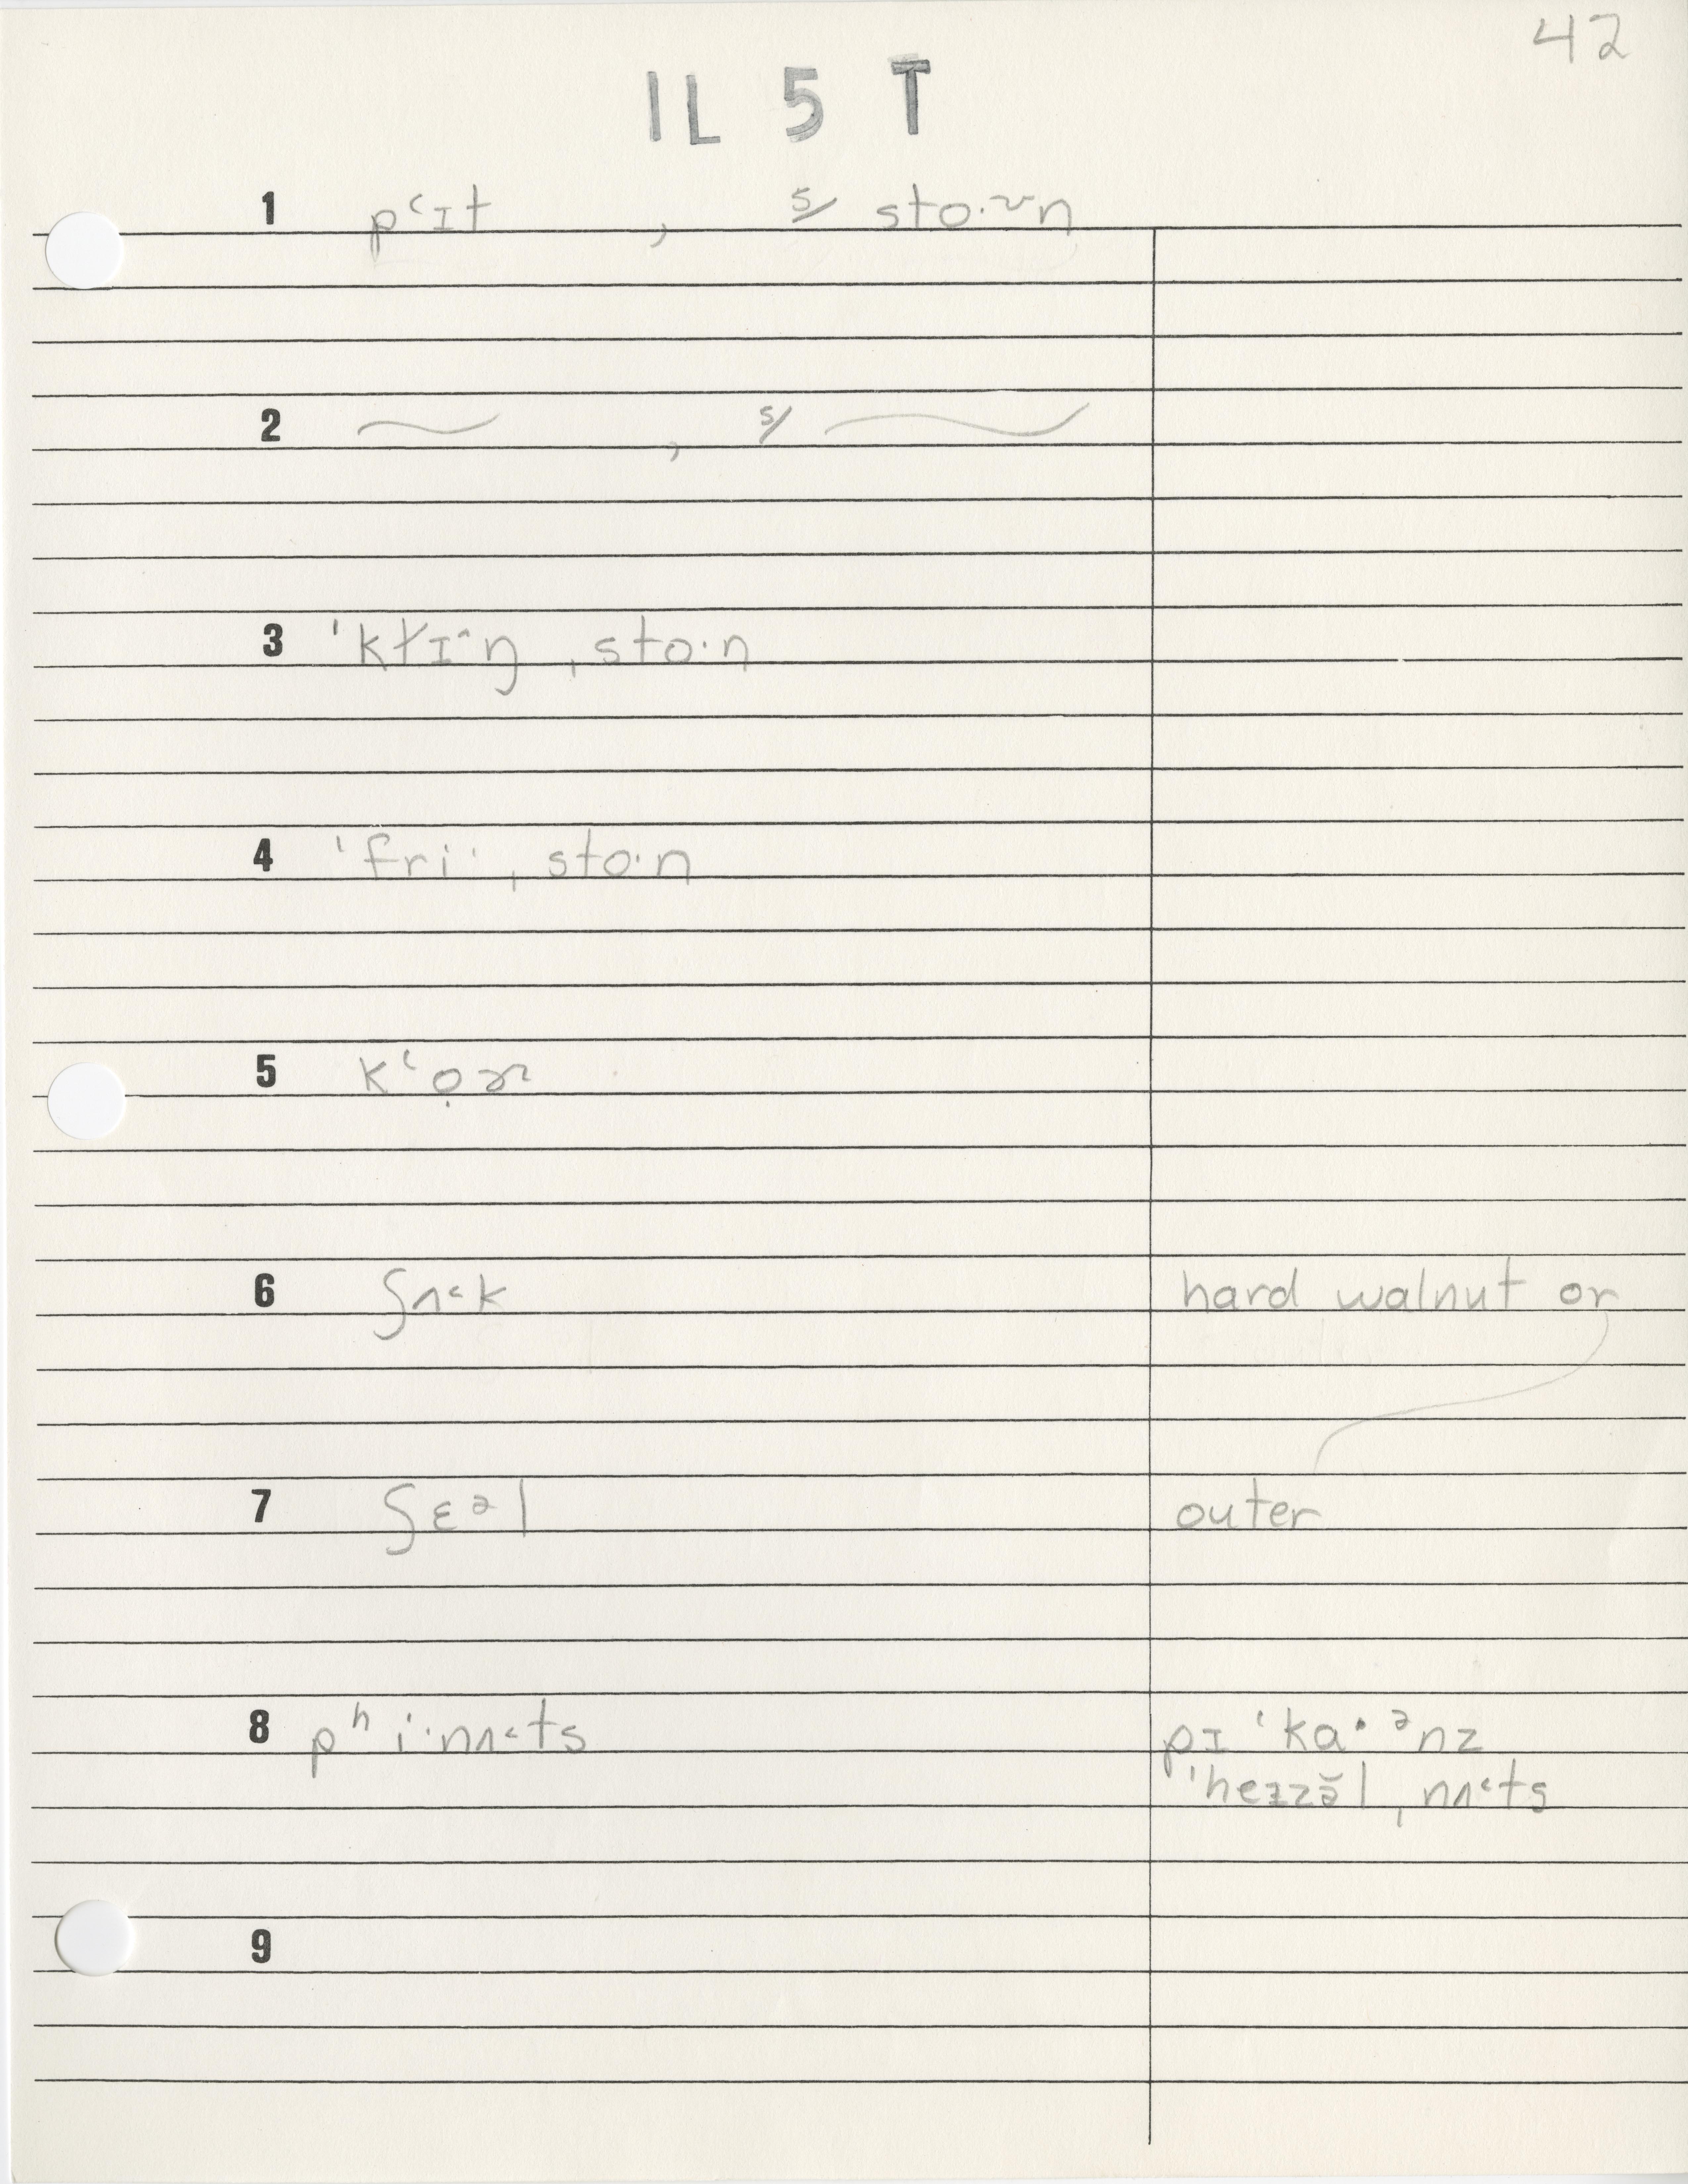 42
IL 5 T
1 pʻɪt , s/ sto·~n
2 ~ , s/ ~
3 ˈkɫɪ^ŋ ˌsto·n
4 ˈfri· ˌsto·n
5 kʻọɚ
6 ʃʌ˂k hard walnut or
7 ʃɛᵊl outer
8 pʰi·nʌ˂ts pɪˈka·ᵊnz
ˈheɪzə̆lˌnʌ˂ts
9